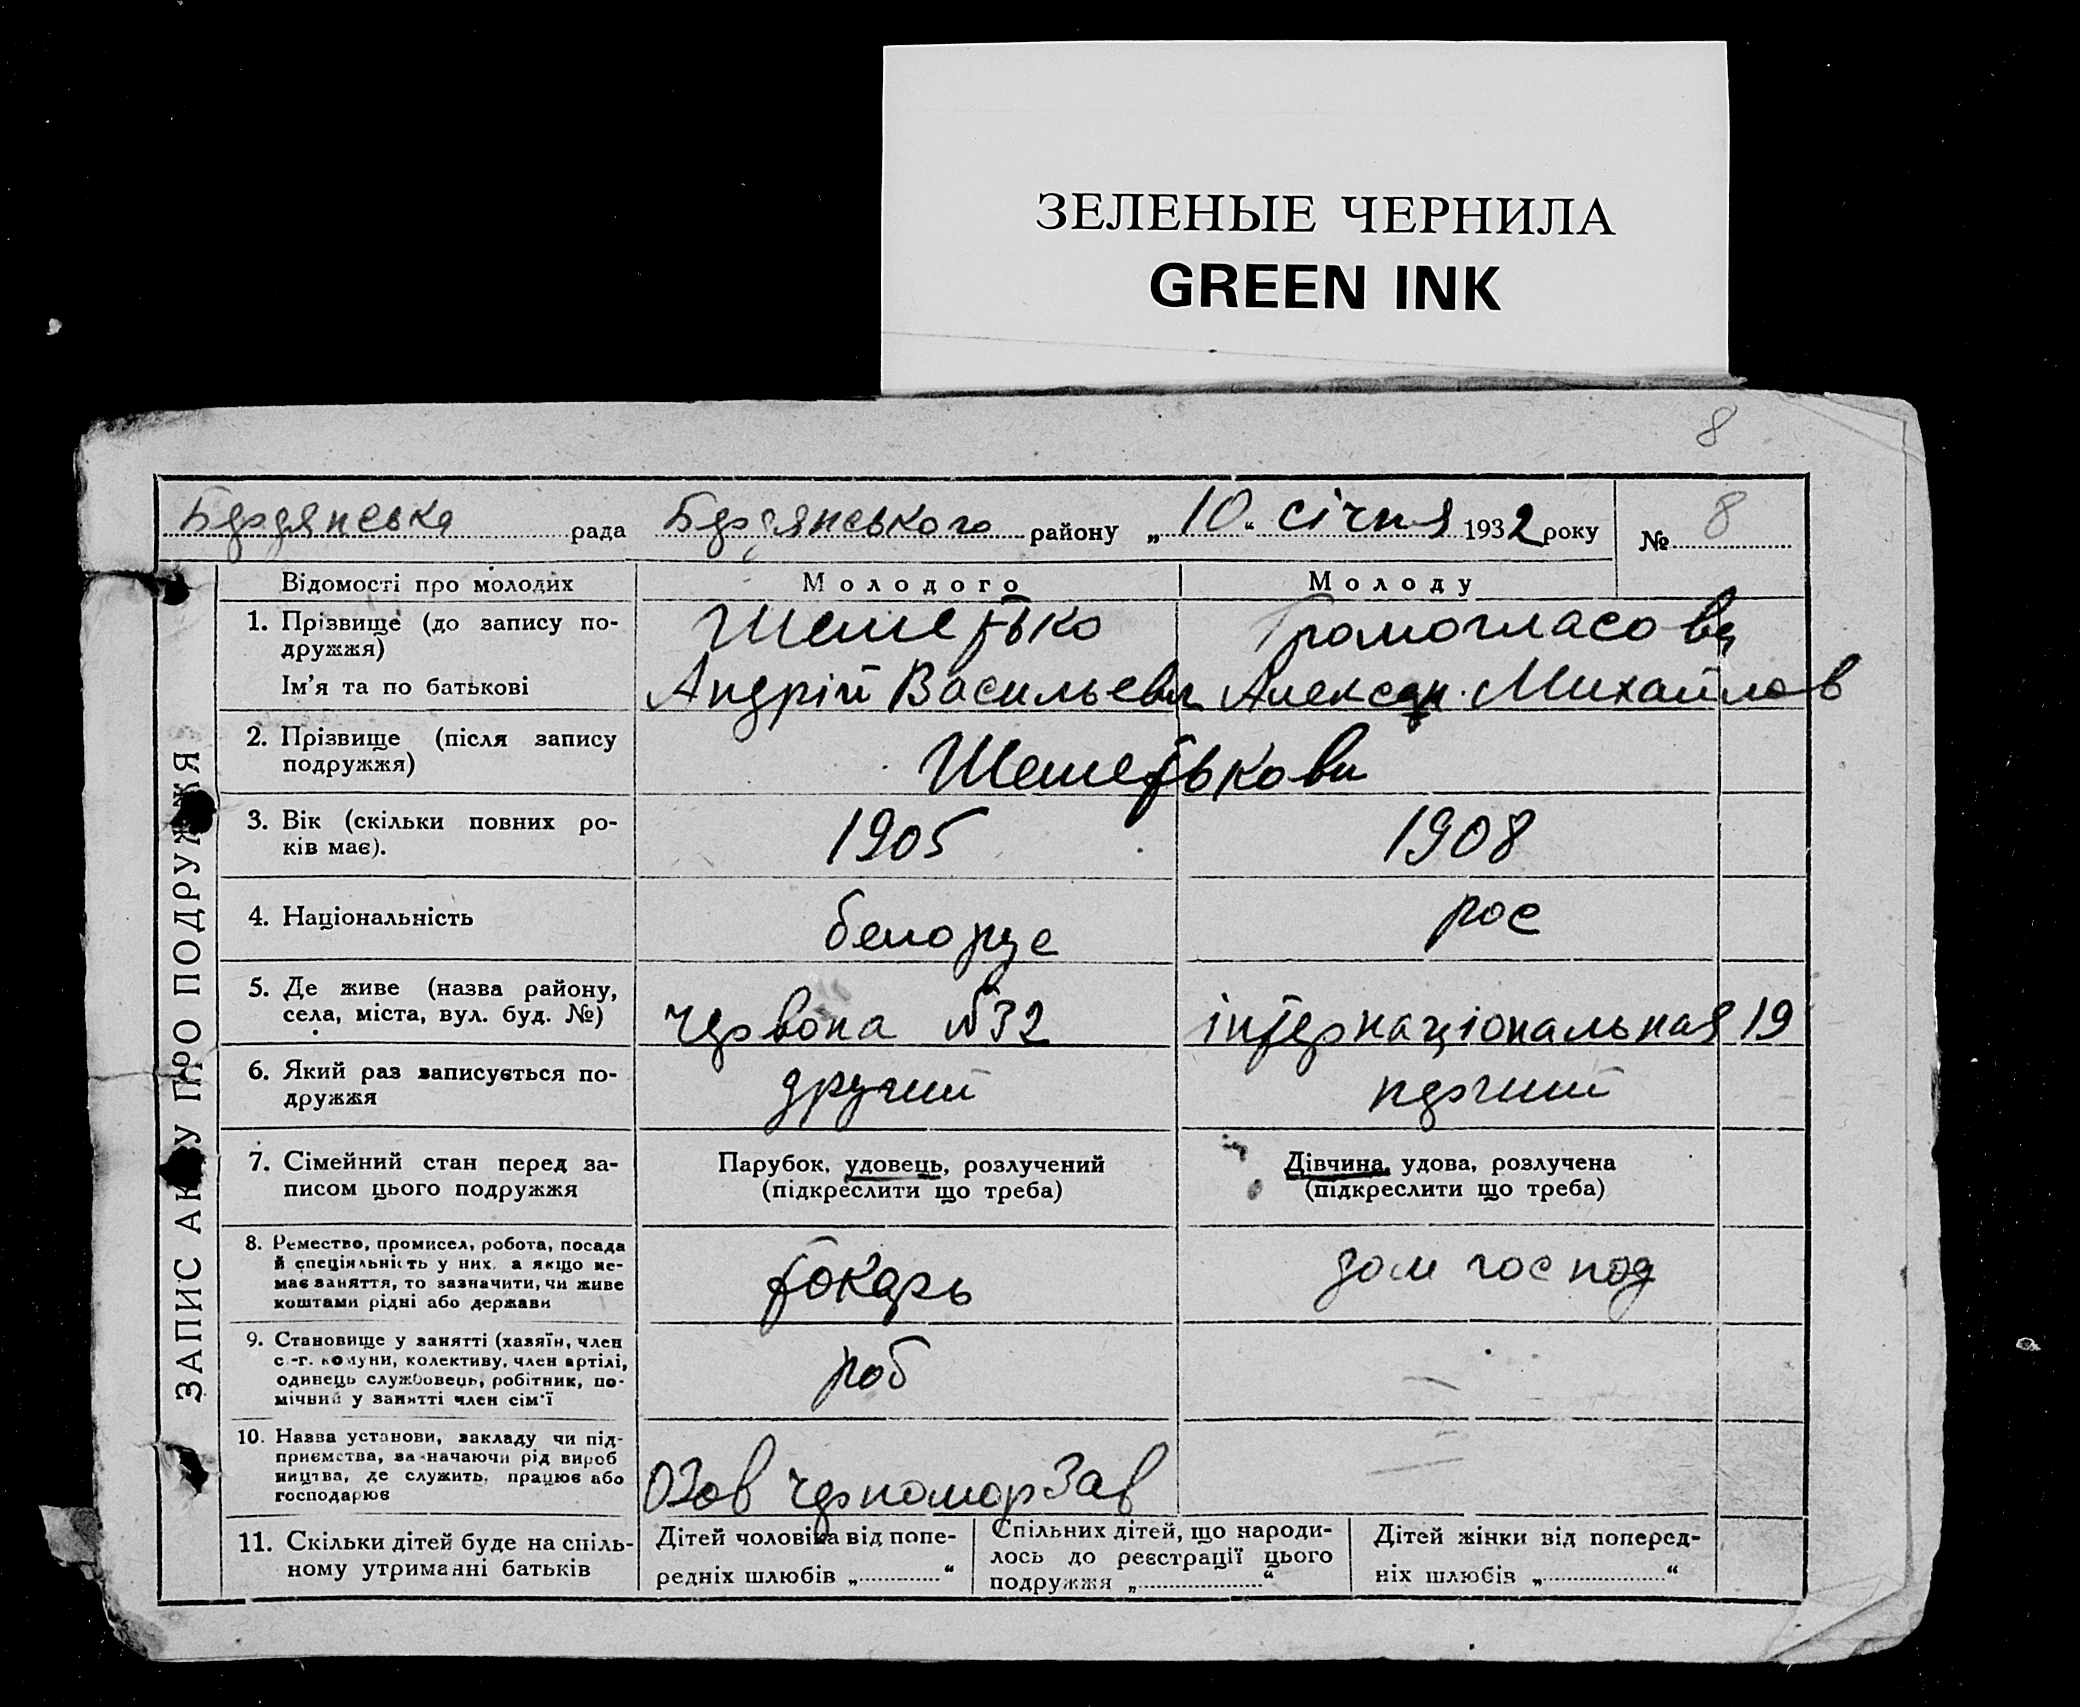 ЗЕЛЕНЫЕ ЧЕРНИЛА
GREEN INK
8
Бердянська рада Бердянського району „10“ січня 1932 року № 8
ЗАПИС АКТУ ПРО ПОДРУЖЖЯ
Відомості про молодих Молодого Молоду
1. Прізвище (до запису по-
дружжя)
Шеметько Громогласова
Ім'я та по батькові Андрій Васильеви Александ. Михайлов
2. Прізвище (після запису
подружжя)
Шеметькови
3. Вік (скільки повних ро-
ків має).
1905 1908
4. Національність белорус рос
5. Де живе (назва району,
села, міста, вул. буд. №)
червона №32 інтернаціональная 19
6. Який раз записується по-
дружжя
другий перший
7. Сімейний стан перед за-
писом цього подружжя
Парубок, удовець, розлучений
(підкреслити що треба)
Дівчина, удова, розлучена
(підкреслити що треба)
8. Ремество, промисел, робота, посада
й спеціяльність у них, а якщо не-
має заняття, то зазначити, чи живе
коштами рідні або держави
токарь дом господ
9. Становище у занятті (хазяїн, член
с.-г. комуни, колективу, член артілі,
одинець службовець, робітник, по-
мічний у занятті член сім'ї
роб
10. Назва установи, закладу чи під-
приємства, зазначаючи рід вироб
ництва, де служить, працює або
господарює
Озов Черномор Зав
11. Скільки дітей буде на спіль-
ному утриманні батьків
Дітей чоловіка від попе-
редніх шлюбів „ “
Спільних дітей, що народи-
лось до реєстрації цього
подружжя „ “
Дітей жінки від поперед-
ніх шлюбів „ “